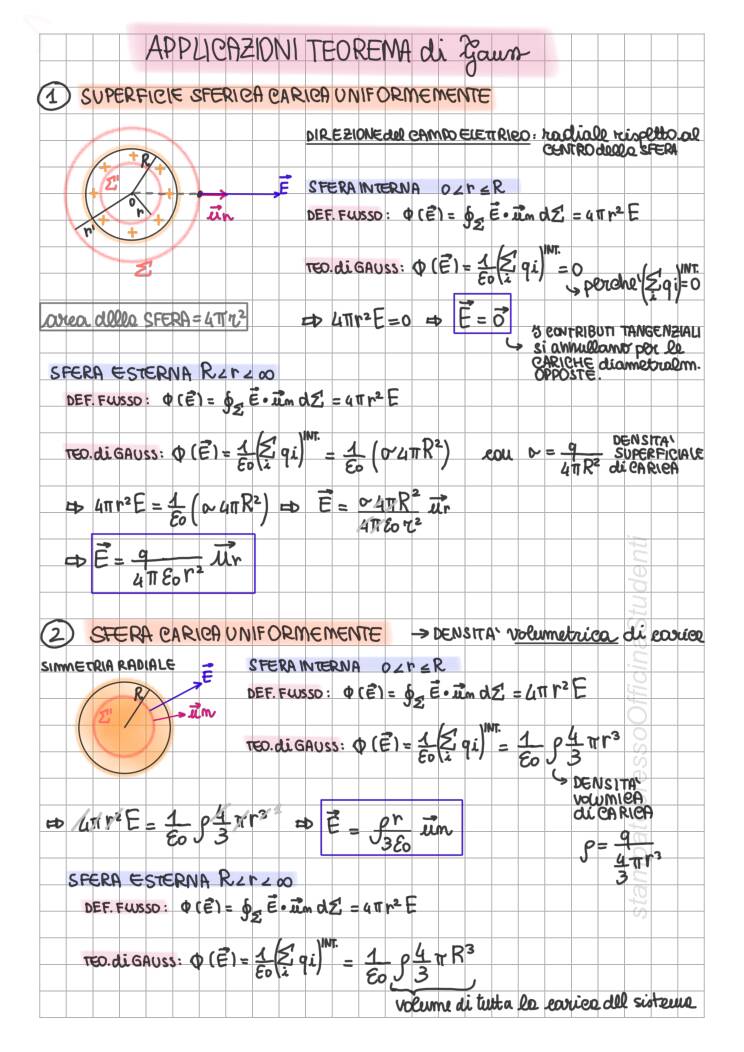 APPLICAZIONI TEOREMA di Gauss
1 SUPERFICIE SFERICA CARICA UNIFORMEMENTE
DIREZIONE del CAMPO ELETTRICO: radiale rispetto al
CENTRO della SFERA
R
Σ'
o
r
r'
Σ
E⃗
u⃗n
SFERA INTERNA 0<r≤R
DEF. FLUSSO: Φ(E⃗) = ∮Σ E⃗ • u⃗n dΣ = 4πr²E
TEO. di GAUSS: Φ(E⃗) = 1/ε0 (Σi qi)^INT. = 0
↳ perché (Σi qi)^INT. = 0
area della SFERA = 4πr²
⇒ 4πr²E = 0 ⇒ E⃗ = 0⃗
↳ I CONTRIBUTI TANGENZIALI
si annullano per le
CARICHE diametralm.
OPPOSTE.
SFERA ESTERNA R<r<∞
DEF. FLUSSO: Φ(E⃗) = ∮Σ E⃗ • u⃗n dΣ = 4πr²E
TEO. di GAUSS: Φ(E⃗) = 1/ε0 (Σi qi)^INT. = 1/ε0 (σ4πR²) con σ = q/4πR² DENSITA' SUPERFICIALE di CARICA
⇒ 4πr²E = 1/ε0 (σ4πR²) ⇒ E⃗ = σ4πR²/4πε0r² u⃗r
⇒ E⃗ = q/4πε0r² u⃗r
2 SFERA CARICA UNIFORMEMENTE → DENSITA' volumetrica di carica
SIMMETRIA RADIALE
R
Σ'
E⃗
u⃗n
SFERA INTERNA 0<r≤R
DEF. FLUSSO: Φ(E⃗) = ∮Σ E⃗ • u⃗n dΣ = 4πr²E
TEO. di GAUSS: Φ(E⃗) = 1/ε0 (Σi qi)^INT. = 1/ε0 ρ 4/3 πr³
↳ DENSITA'
VOLUMICA
di CARICA
ρ = q/(4/3 πr³)
⇒ 4πr²E = 1/ε0 ρ 4/3 πr³ ⇒ E⃗ = ρr/3ε0 u⃗n
SFERA ESTERNA R<r<∞
DEF. FLUSSO: Φ(E⃗) = ∮Σ E⃗ • u⃗n dΣ = 4πr²E
TEO. di GAUSS: Φ(E⃗) = 1/ε0 (Σi qi)^INT. = 1/ε0 ρ 4/3 πR³
volume di tutta la carica del sistema